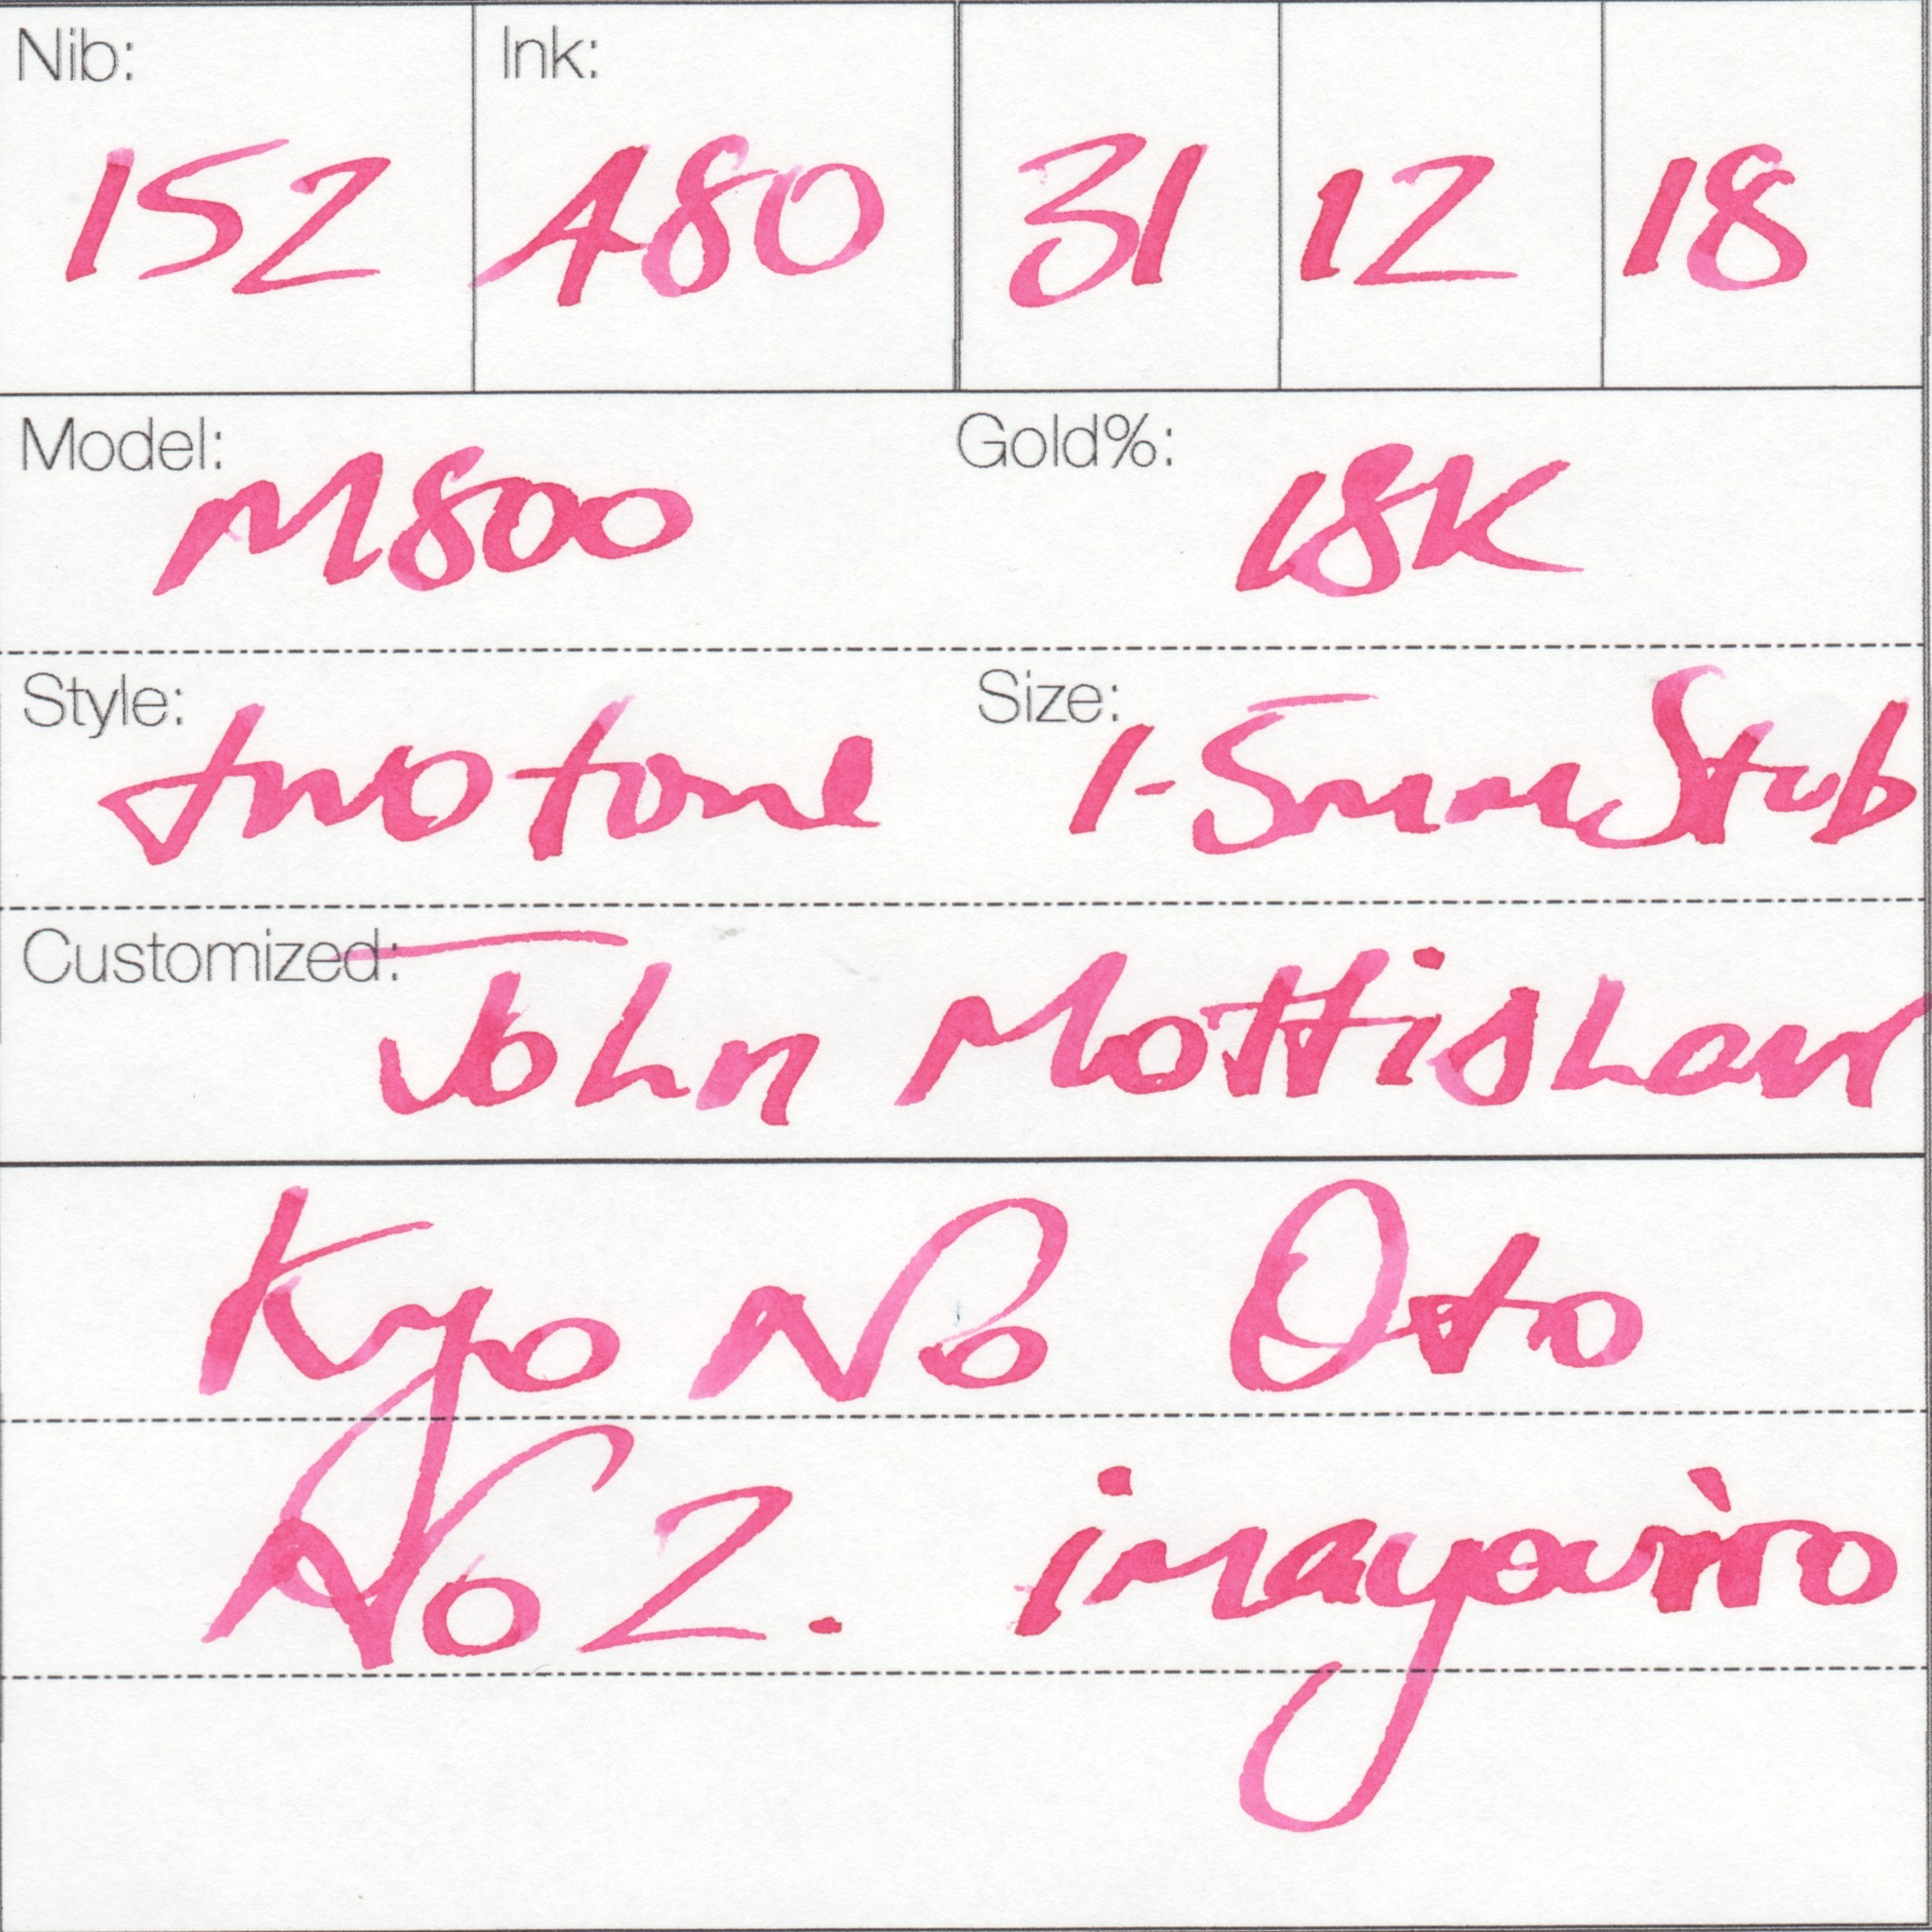 Nib: Ink:
152 A80 31 12 18
Model: M800 Gold%: 18K
Style: two tone Size: 1.5mm Stub
Customized: John Mottishaw
Kyo No Oto
No 2. imayouiro